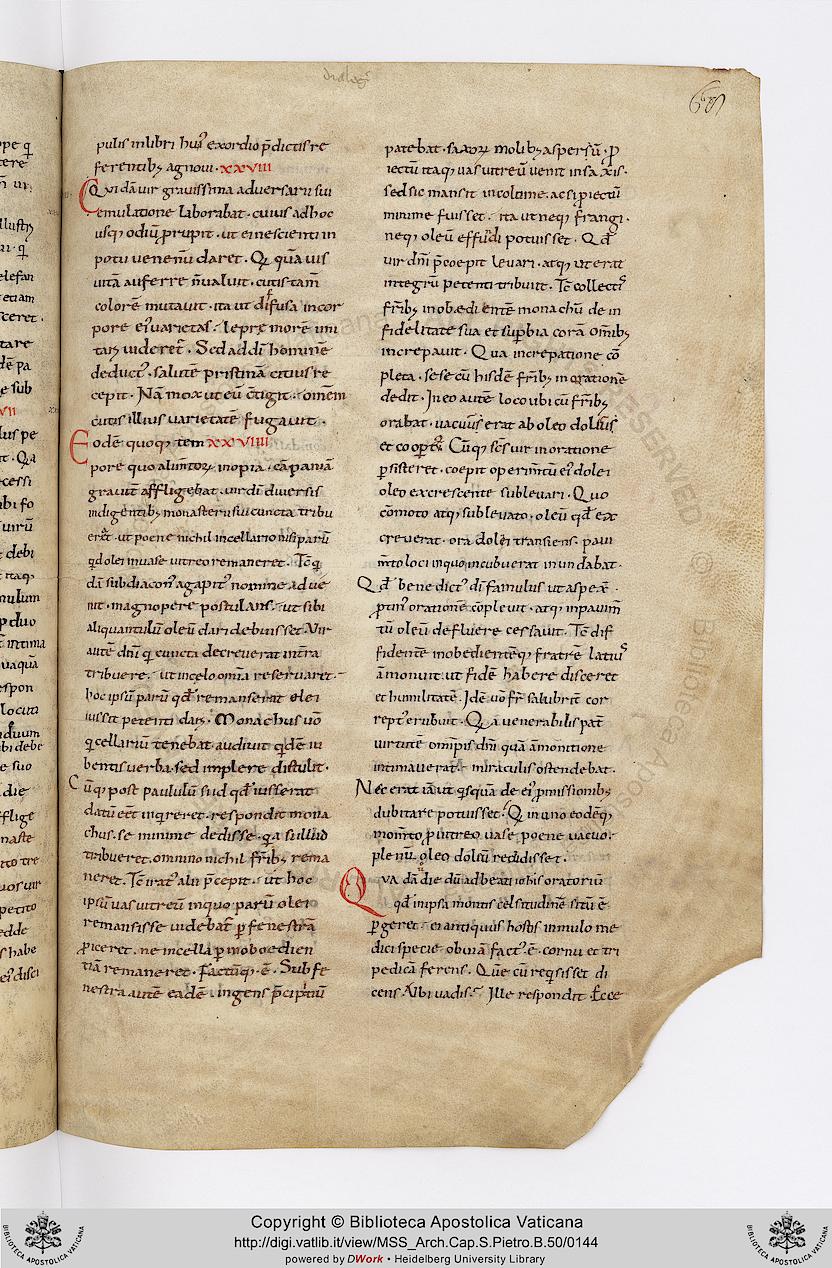 pulis in libri hui᷒ exordio p̄dictis re
ferentib; agnoui. xxviii
Qvidā uir grauissima aduersarii sui
emulatione laborabat. cuius ad hoc
usq; odiū ꝓrupit. ut ei nescienti in
potu uenenū daret. Qꝫ quāuis
uitā auferre n̄ ualuit. cutis tam̄
colorē mutauit. ita ut diffusa in cor
pore ei᷒ uarietas. lepre morē imi
tari uideret᷑. Sed ad dī hominē
deduct᷒. salutē pristinā citius re
cepit. Nā mox ut eū c̄tigit. omēm
cutis illius uarietatē fugauit.
Eodē quoq; tem xxviiii
pore quo alim̄toꝝ inopia. cāpaniā
grauit̄ affligebat. uir dī diuersis
indigentib; monasterii sui cuncta tribu
erat. ut poene nichil in cellario nisi parū
qd olei in uase uitreo remaneret. Tc̄ q
dā subdiacon᷒ agapit᷒ nomine adue
nit. magnopere postulans. ut sibi
aliquantulū oleū dari debuisset. Vir
autē dn̄i q cuncta decreuerat in t̄ra
tribuere. ut in celo omīa reseruaret.
hoc ipsū parū qd remanserat olei
iussit petenti dari. Monachus uō
q cellariū tenebat. audiuit qdē iu
bentis uerba. sed implere distulit.
Cūq; post paululū si id qd iusserat
datū eēt inqreret. respondit mona
chus. se minime dedisse. qa si illud
tribueret. omnino nichil frīb; rema
neret. Tc̄ irat᷒ alii p̄cepit. ut hoc
ipsū uas uitreū in quo parū olei
remansisse uidebat᷑ p fenestrā
ꝓiceret. ne in cella p inoboedien
tiā remaneret. Factūq; ē. Sub fe
nestra autē eadē. ingens p̄cipitiū
patebat. saxoꝝ molib; aspersū. ꝓ
iectū itaq; uas uitreū uenit in saxis.
sed sic mansit incolume. ac si ꝓiectū
minime fuisset. ita ut neq; frangi.
neq; oleū effundi potuisset. Qd
uir dn̄i p̄coepit leuari. atq; ut erat
integrū petenti tribuit. Tc̄ collectis
frīb; inobedientē monachū de in
fidelitate sua et supbia corā omīb;
increpauit. Qua increpatione cō
pleta. sese cū hisdē frīb; in orationē
dedit. In eo autē loco ubi cū frīb;
orabat. uacuus erat ab oleo dolius
et coopert᷒. Cūq; scs uir in oratione
psisteret. coepit operim̄tū ei᷒ dolei
oleo excrescente subleuari. Quo
cōmoto atq; subleuato. oleū qd ex
creuerat. ora dolei transiens. paui
m̄to loci in quo incubuerat inundabat.
Qd benedict᷒ dī famulus ut aspexit.
ꝓtin᷒ orationē cōpleuit. atq; in pauim̄
tū oleū defluere cessauit. Tc̄ dif
fidentē inobedientēq; fratrē lati᷒
āmonuit. ut fidē habere disceret
et humilitatē. Idē uō fr̄ salubrit̄ cor
rept᷒ erubuit. Quia uenerabilis pat̄
uirtutē omīpis dn̄i quā āmonitione
intimauerat. miraculis ostendebat.
Nec erat iā ut qsquā de ei᷒ ꝓmissionib;
dubitare potuisset. Qi in uno eodēq;
mom̄to ꝓ uitreo uase poene uacuo.
plenū oleo doliū redidisset.
Qva dā die dū ad beati iohis oratoriū
qd in ipsa montis celsitudine sitū ē
pgeret. ei antiquus hostis in mulo me
dici specie obuiā fact᷒ ē. cornu et tri
pedicā ferens. Quē cū reqsisset di
cens. Vbi uadis. Ille respondit. Ecce
Copyright © Biblioteca Apostolica Vaticana
http://digi.vatlib.it/view/MSS_Arch.Cap.S.Pietro.B.50/0144
powered by DWork • Heidelberg University Library